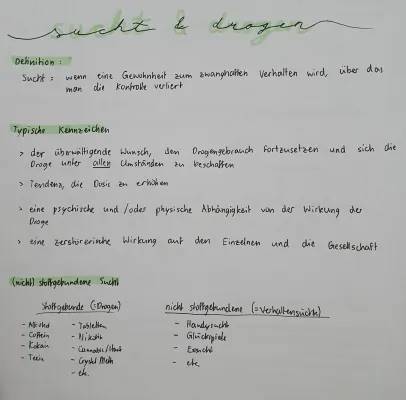 sucht & drogen
Definition:
Sucht: wenn eine Gewohnheit zum zwanghaften Verhalten wird, über das
man die Kontrolle verliert
Typische Kennzeichen
> der überwältigende Wunsch, den Drogengebrauch fortzusetzen und sich die
Droge unter allen Umständen zu beschaffen
> Tendenz, die Dosis zu erhöhen
> eine psychische und/oder physische Abhängigkeit von der Wirkung der
Droge
> eine zerstörerische Wirkung auf den Einzelnen und die Gesellschaft
(nicht) stoffgebundene Sucht
stoffgebunde (=Drogen)
- Alkohol
- Coffein
- Kokain
- Teein
- Tabletten
- Nikotin
- Cannabis/Hanf
- Crystal Meth
- etc.
nicht stoffgebundene (=Verhaltensucht)
- Handysucht
- Glücksspiele
- Esssucht
- etc.